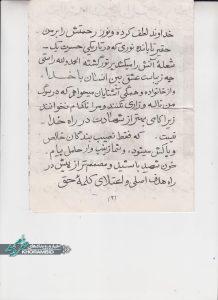 خداوند لطف کرده و نور رحمتش را بر من
حقیر تابانده نوری که در تاریکی حسرت یک
شعلهٔ آتش را میکشد برتو گشته الحمدلله راستی
چه زیباست عشق بین انسان با خدا!
از خانواده و همگی آشنایان میخواهم که در سوگ
من ناله و زاری نکنند و مرا ناکام نخوانند
زیرا کامی بهتر از شهادت در راه خدا
نیست. که فقط نصیب بندگان خالص
و پاکش میشود. و شما زینب وار حامل پیام
خون شهید باشید و مصمم‌تر از پیش در
راه هدف اصلی و اعتلای کلمهٔ حق
(۲)
KHORAMBID